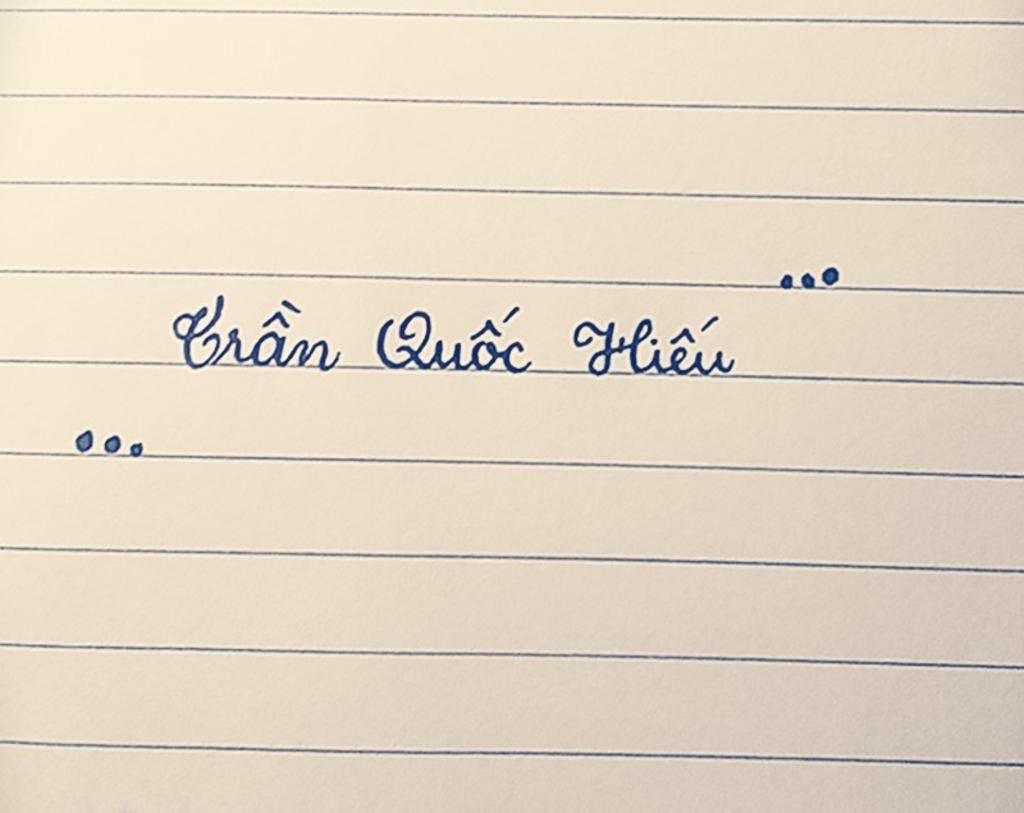 ...
Trần Quốc Hiếu
...